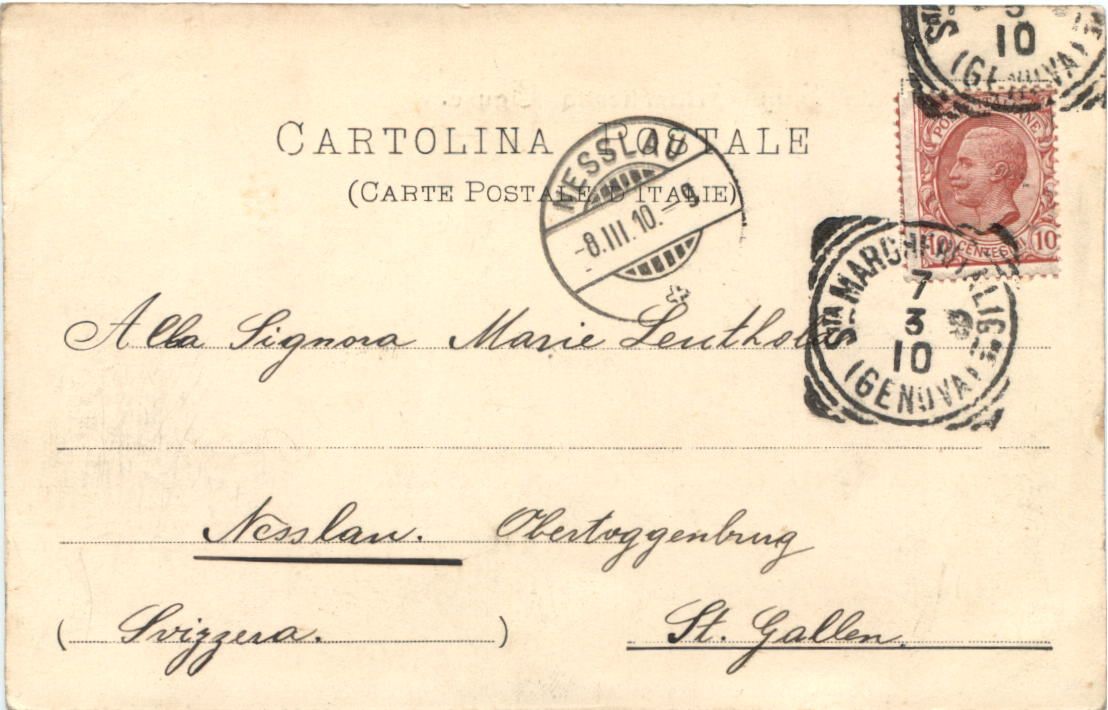 Sta
3
10
(GENOVA)
CARTOLINA POSTALE
(CARTE POSTALE D'ITALIE)
POSTE ITALIANE
10 CENTESIMI 10
NESSLAU
-8.III.10.-9
Sta MARGHERITA LIGRE
7
3
10
(GENOVA)
Alla Signora Marie Leuthold
Nesslau. Obertoggenbrug
(Svizzera.) St. Gallen.